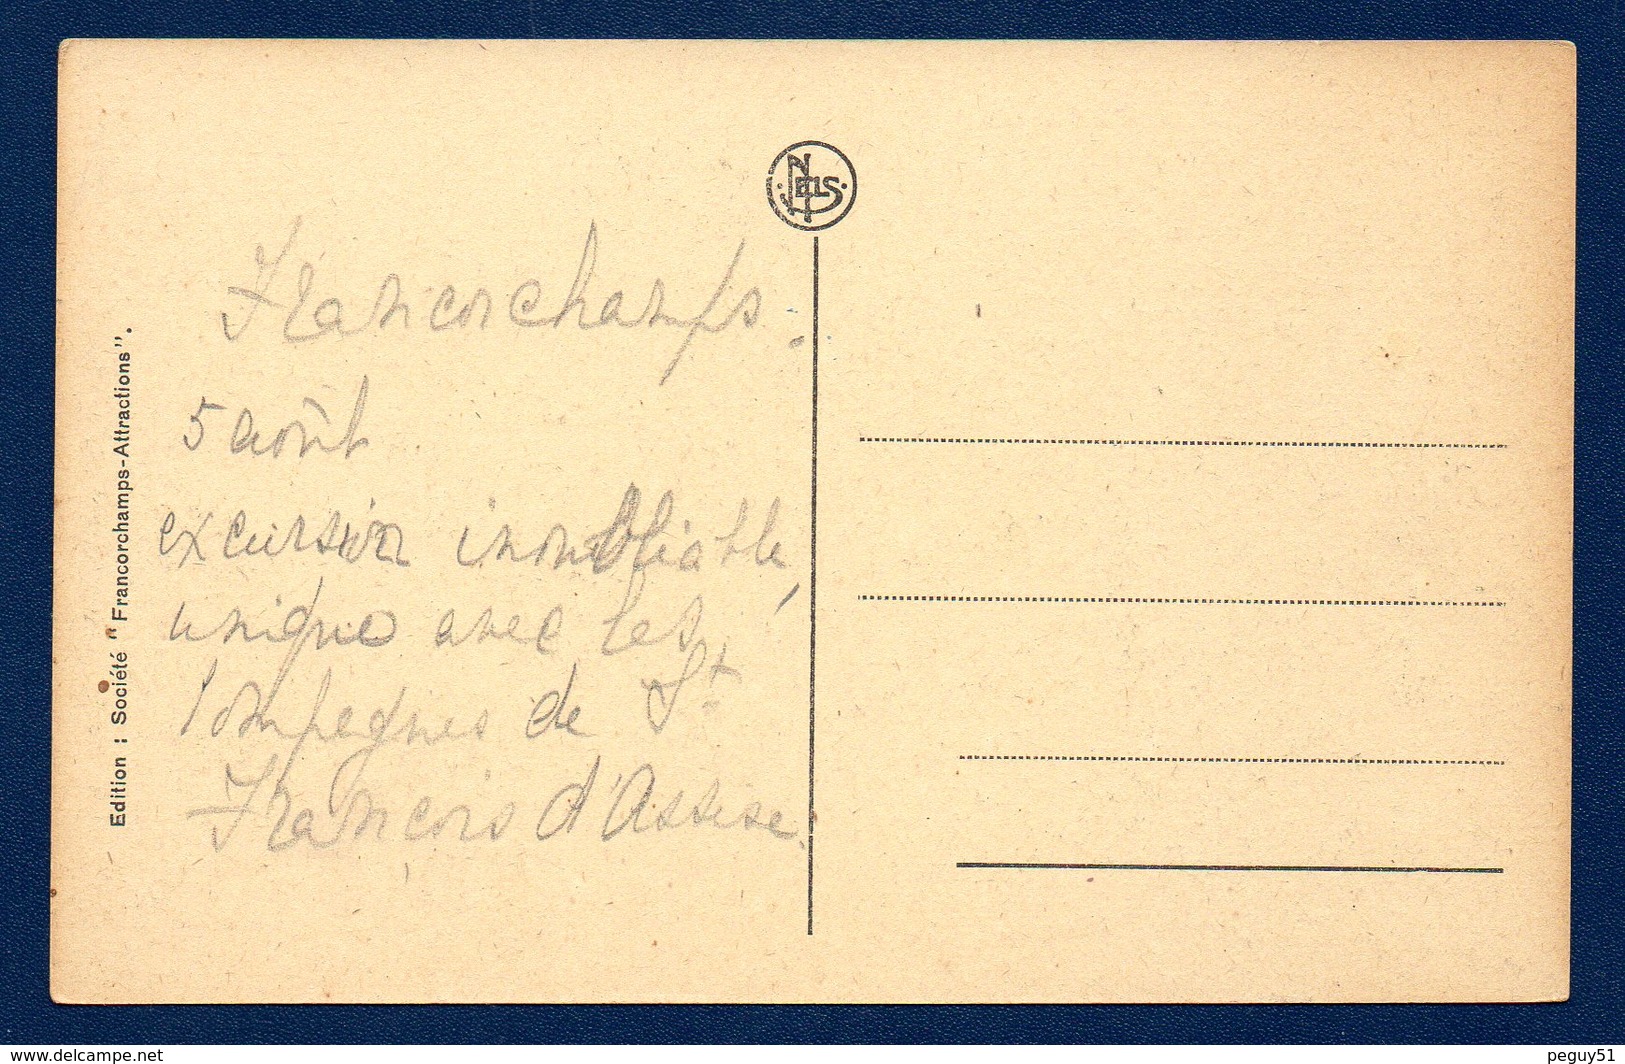 NELS
Edition : Société " Francorchamps-Attractions".
Francorchamps.
5 août
excursion inoubliable,
unique avec les
Compegnes de St
François d'Assise.
www.delcampe.net
peguy51